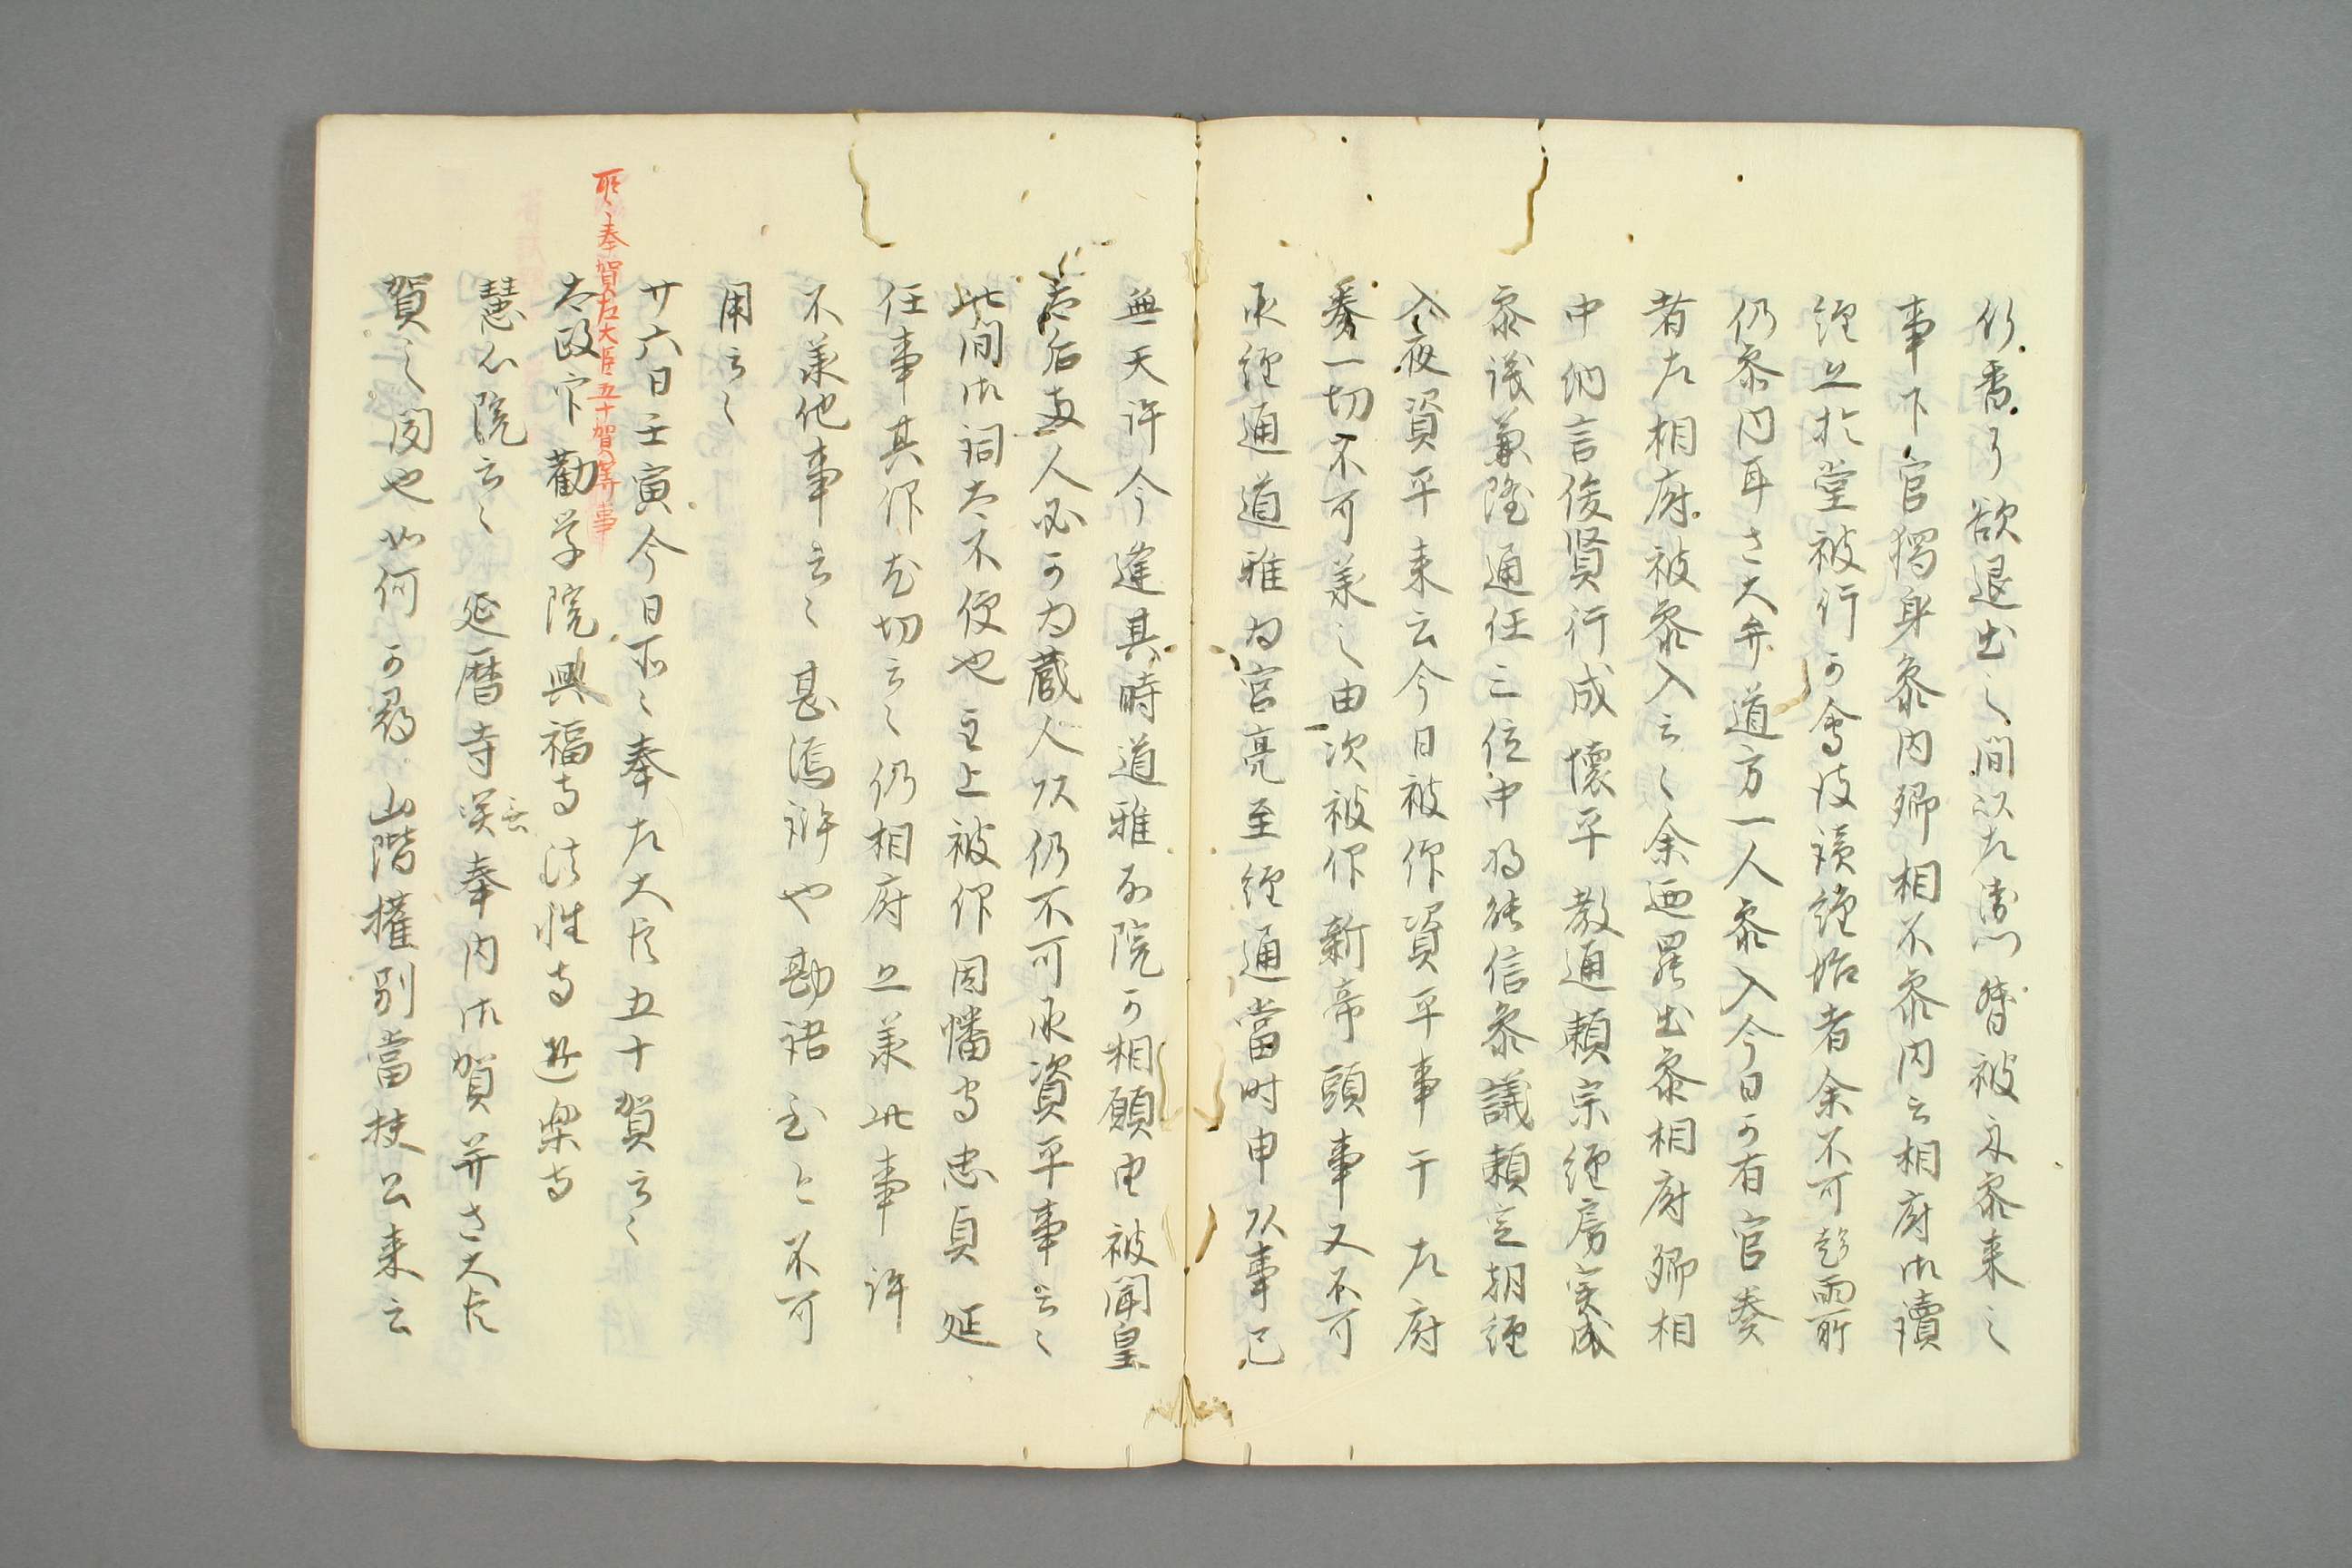 行香了欲退出之間以左衛門督被示参来之
事下官独身参内卿相不参内云相府御讀
經上於堂被行可會彼讀經始者余不可 雨所
仍参内耳左大弁道方一人参入今日可有官奏
者左相府被参入云々余廼罷出参相府卿相
中納言俊賢行成懐平教通頼宗経房実成
参議兼隆通任三位中将能信参議頼定朝經
入夜資平来云今日被仰資平事于左府
奏一切不可兼之由次被仰新帝頭事又不可
承経通道雅為宮亮至経通當时申以事已
無天许今逢其時道雅於院可相願由被聞皇
太后両人必可為蔵人頭仍不可承資平事云々
此間御詞太不便也主上被仰因幡守忠貞延
任事其仰尤切云々仍相府云兼此事許
不兼他事云々甚嗚許也勘諸云々不可
用云々
所々奉賀左大臣五十賀等事
廿六日壬寅今日所々奉左大臣五十賀云々
太政官勧学院興福寺法性寺極楽寺
慧心院云々 延暦寺 奉内御賀并左大臣
賀之間也如何可尋 山階權別當扶公来云